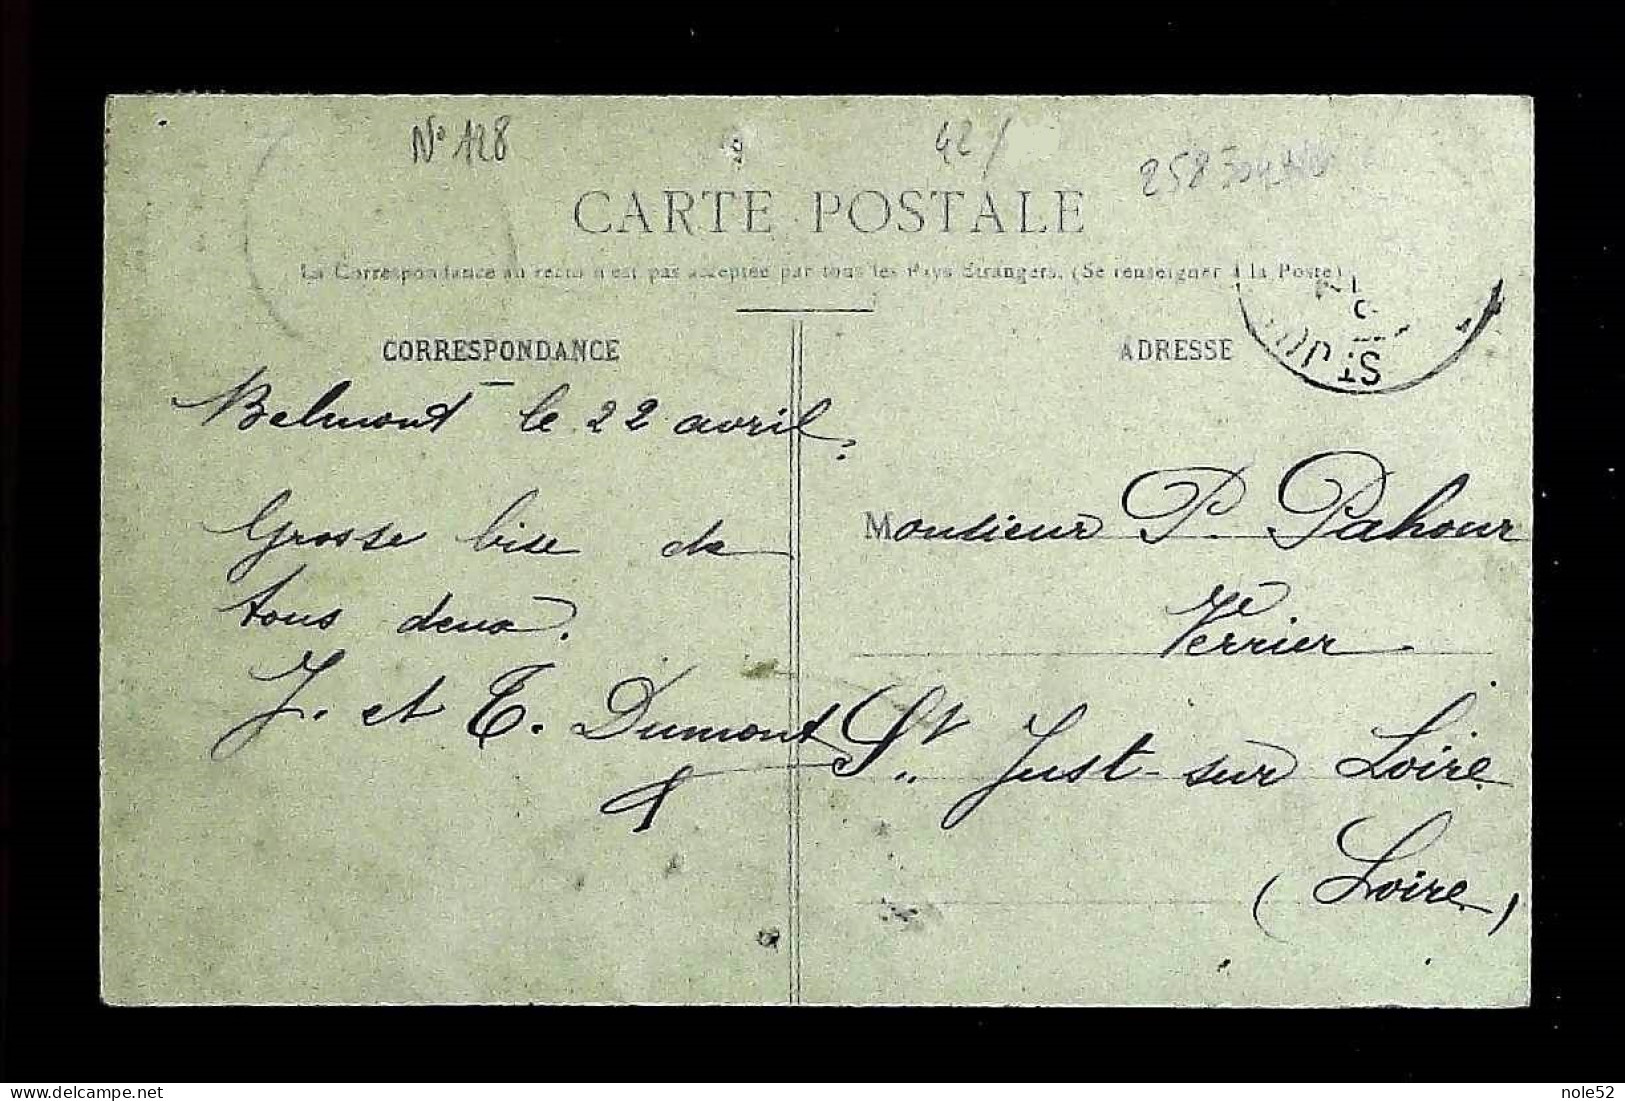 N° 128
9
42 /
258
CARTE POSTALE
La Correspondance au recto n'est pas acceptée par tous les Pays Étrangers. (Se renseigner à la Poste)
CORRESPONDANCE
Belmont le 22 avril.
Grosse bise de
tous deux.
J. et T. Dumont
ADRESSE
ST JU
Monsieur P. Pahour
Verrier
St Just-sur Loire
(Loire)
delcampe.net
nole52